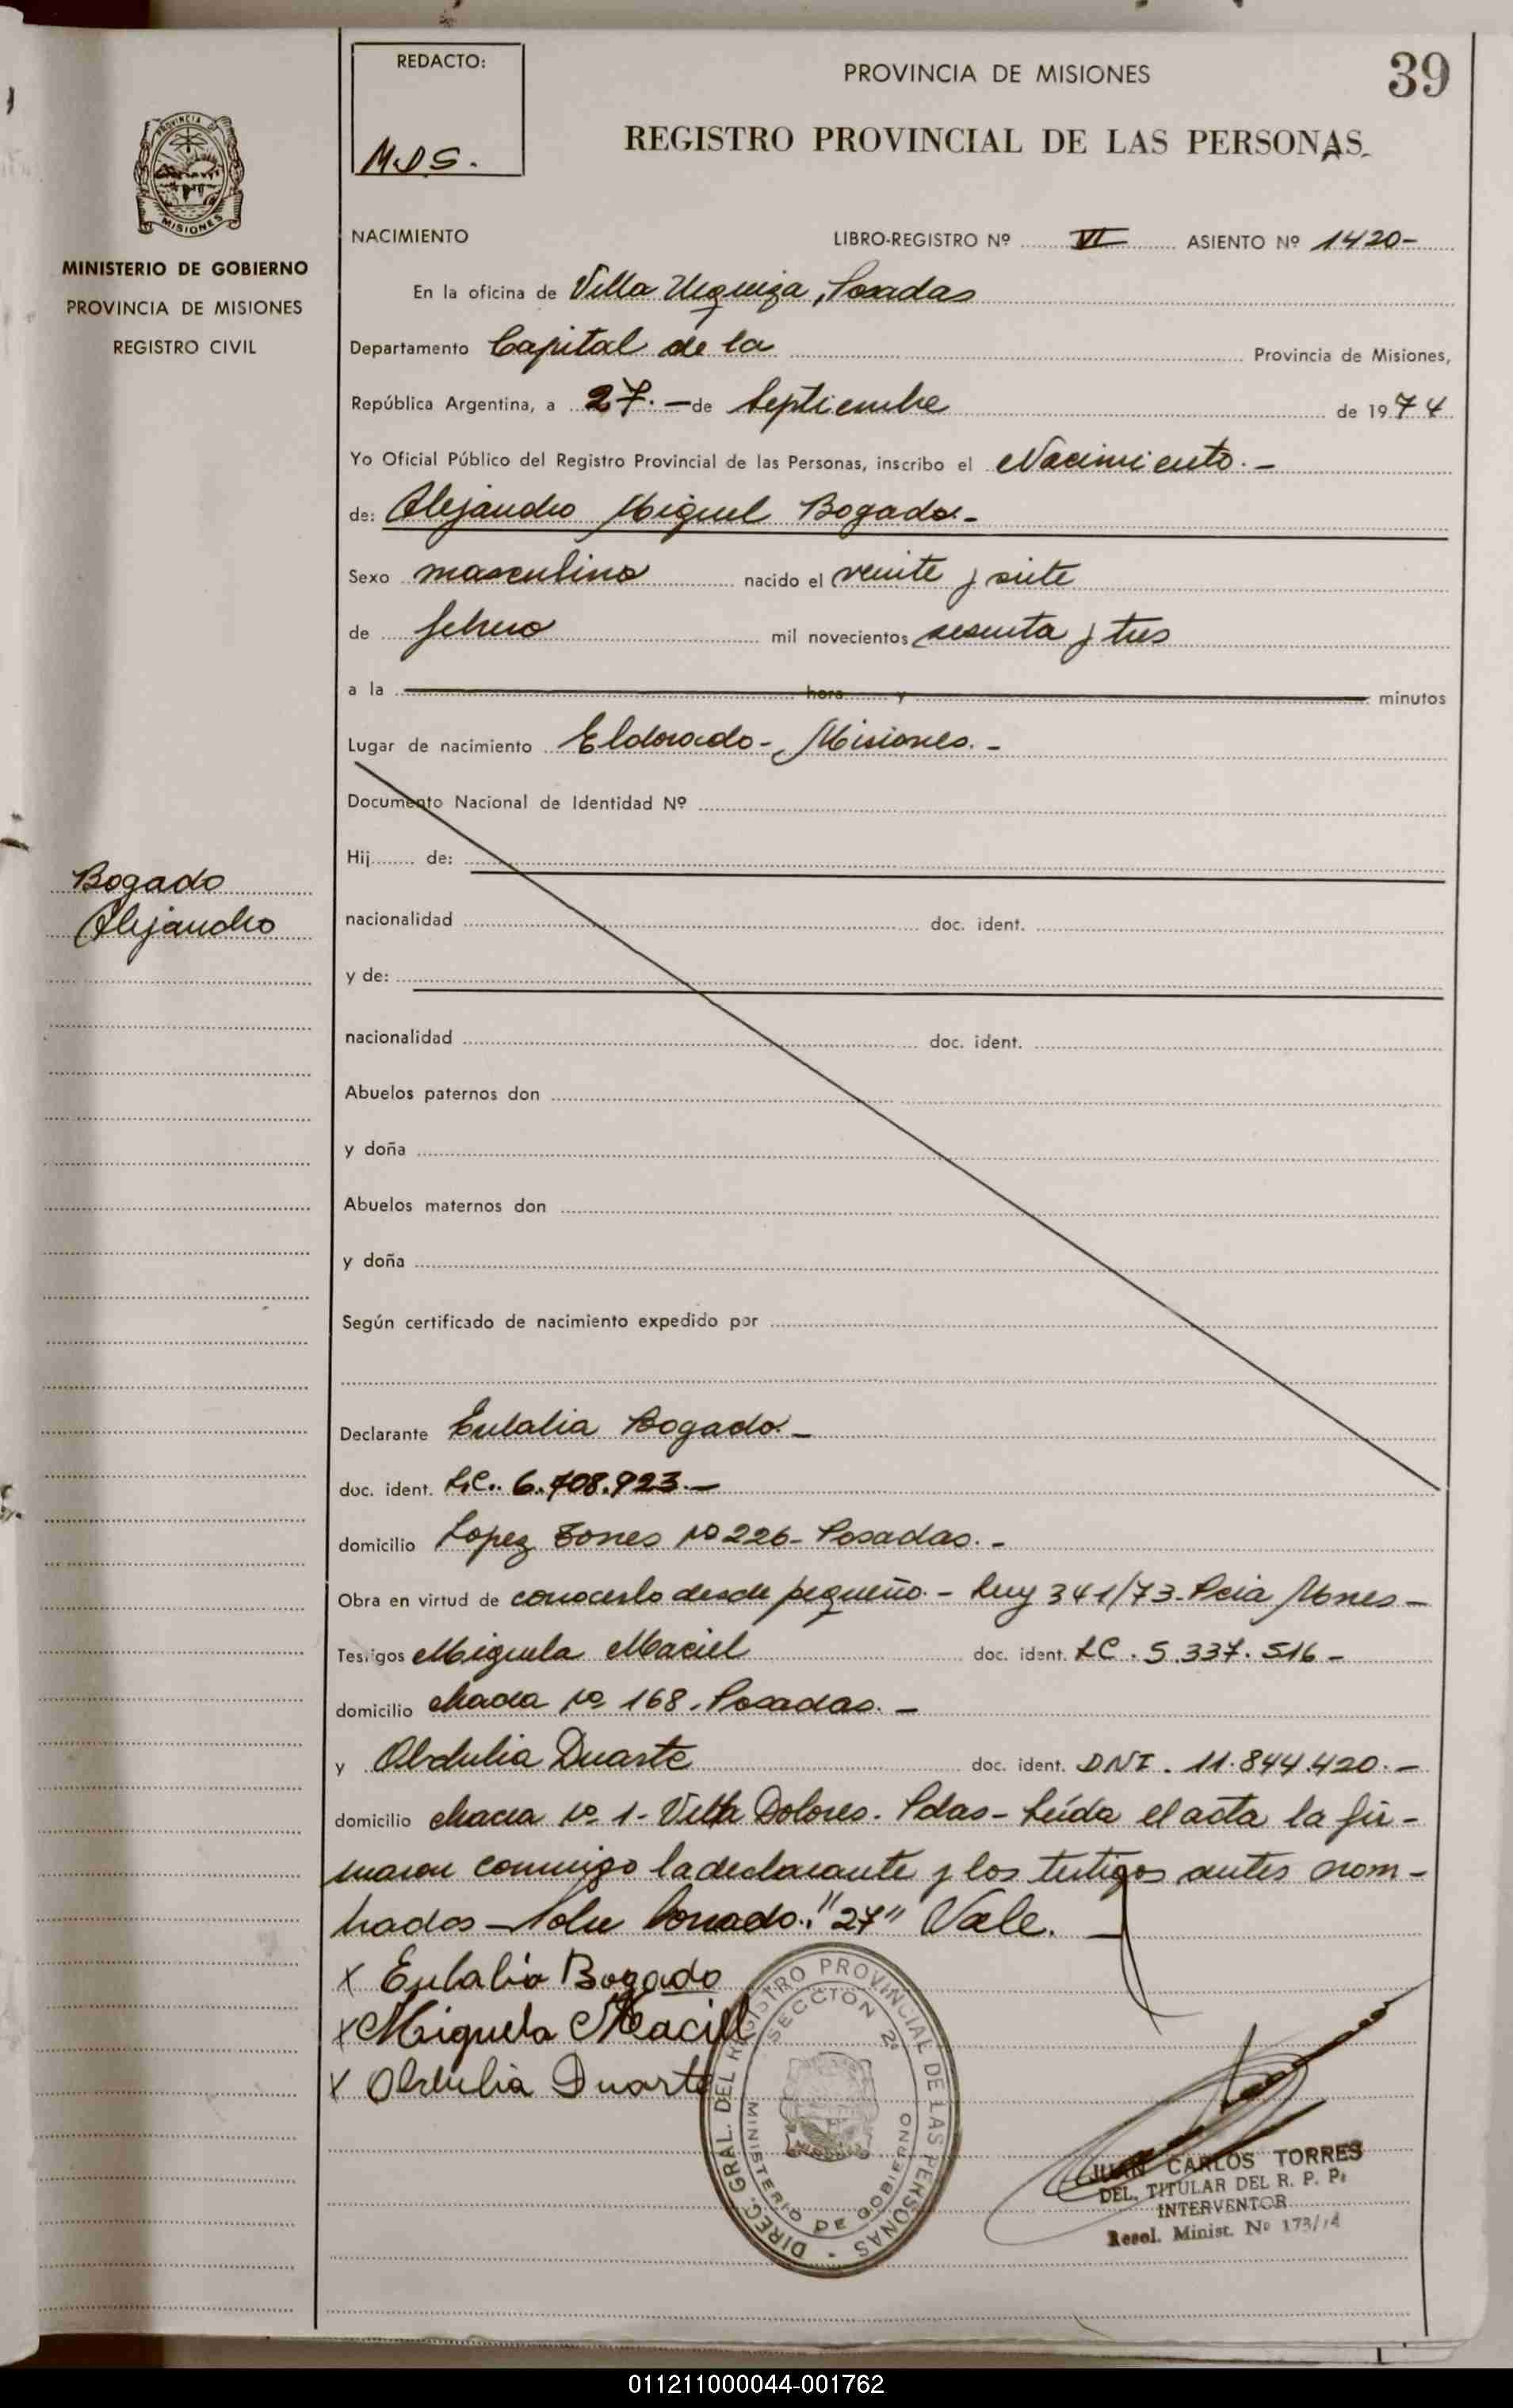 REDACTO:
M.D.S.
PROVINCIA DE MISIONES
39
REGISTRO PROVINCIAL DE LAS PERSONAS
PROVINCIA DE
MISIONES
MINISTERIO DE GOBIERNO
PROVINCIA DE MISIONES
REGISTRO CIVIL
NACIMIENTO
LIBRO-REGISTRO Nº VI ASIENTO Nº 1420-
En la oficina de Villa Urquiza, Posadas
Departamento Capital de la Provincia de Misiones,
República Argentina, a 27.- de Septiembre de 1974
Yo Oficial Público del Registro Provincial de las Personas, inscribo el Nacimiento.-
de: Alejandro Miguel Bogado.-
Sexo masculino nacido el veinte y siete
de febrero mil novecientos sesenta y tres
a la hora y minutos
Lugar de nacimiento Eldorado-, Misiones.-
Documento Nacional de Identidad Nº
Hij de:
Bogado
Alejandro
nacionalidad doc. ident.
y de:
nacionalidad doc. ident.
Abuelos paternos don
y doña
Abuelos maternos don
y doña
Según certificado de nacimiento expedido por
Declarante Eulalia Bogado.-
doc. ident. L.C.. 6.408.923.-
domicilio Lopez Torres Nº 226- Posadas.-
Obra en virtud de conocerlo desde pequeño.- Ley 341/73. Pcia Mnes-
Testigos Miguela Maciel doc. ident. LC. 5.337.516-
domicilio chacra Nº 168. Posadas.-
y Obdulia Duarte doc. ident. DNI. 11.844.420.-
domicilio chacra Nº 1- Villa Dolores. Pdas- Leída el acta la fir-
maron conmigo la declarante y los testigos antes nom-
brados - Sobre borrado: "27" Vale.
x Eulalia Bogado
x Miguela Maciel
x Obdulia Duarte
DIREC. GRAL. DEL REGISTRO PROVINCIAL DE LAS PERSONAS
SECCION 2ª
MINISTERIO DE GOBIERNO
JUAN CARLOS TORRES
DEL. TITULAR DEL R. P. P.
INTERVENTOR
Resol. Minist. Nº 173/74
011211000044-001762